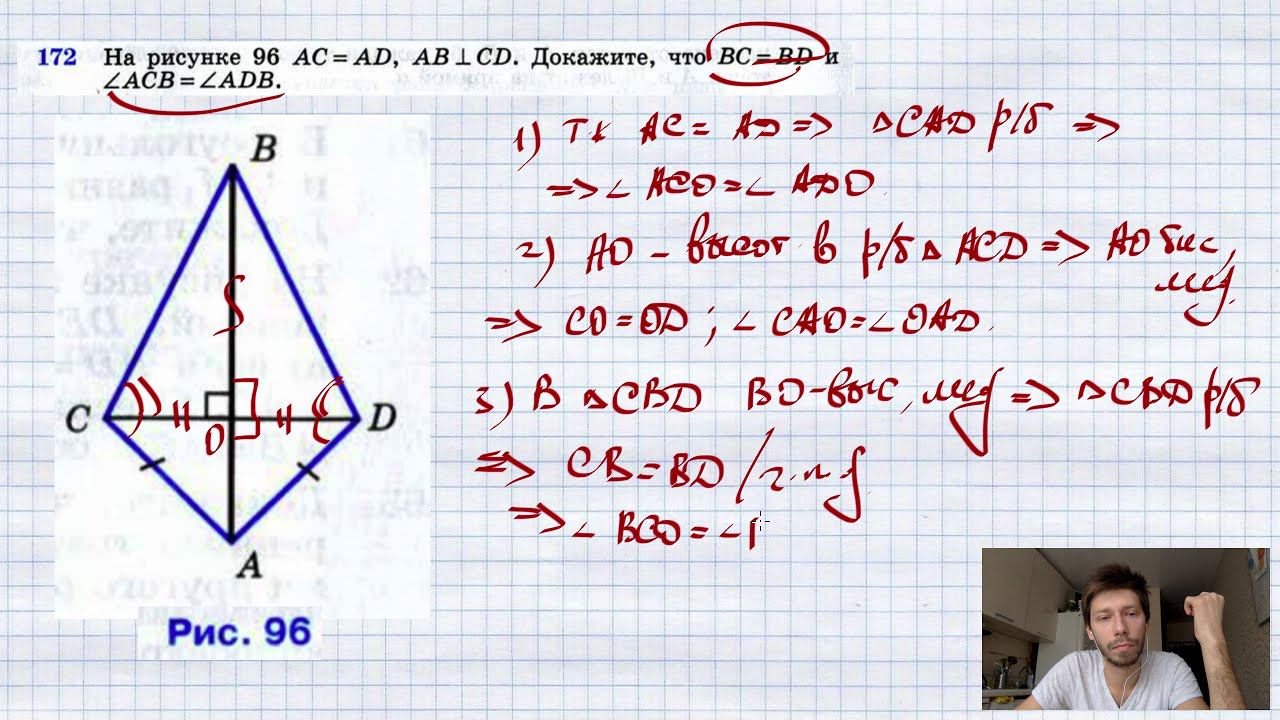 172 На рисунке 96 AC = AD, AB ⊥ CD. Докажите, что BC = BD и
∠ACB = ∠ADB.
B
C
O
D
A
Рис. 96
1) Тк AC = AD => △CAD р/б =>
=> ∠ACO = ∠ADO
2) AO – высот в р/б △ACD => AO бис,
мед.
=> CO = OD ; ∠CAO = ∠OAD.
3) В △CBD BO-выс, мед => △CBD р/б
=> CB = BD / ч.т.д
=> ∠BCO = ∠